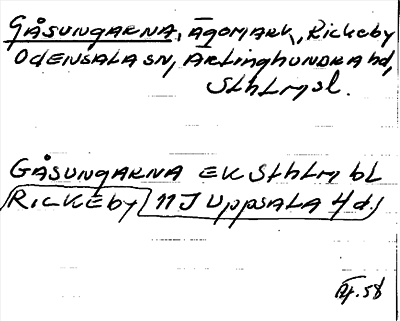 GÅSUNGARNA, ÄGOMARK, Rickeby
OdENSALA SN, ÄRlinghUNDRA hd,
SthLMs l.
GÅSUNGARNA EK SthLM bL
RICKEby 11J UppSALA 4 d.)
58